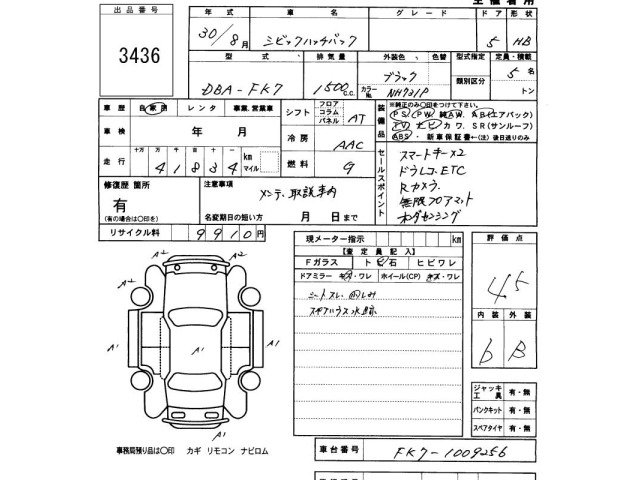 主催者用
出品番号 年式 車名 グレード ドア 形状
3436 30/8月 シビックハッチバック 5 HB
型式 排気量 外装色 色替 型式指定 定員・積載
DBA-FK7 1500c.c. ブラック カラーNo. NH731P 類別区分 5名 トン
車歴 自家用 レンタ 事業、営業車 シフト フロア コラム パネル AT
装備品 ※純正のみ〇印をつけて下さい。
PS PW 純AW. AB(エアバック)
TV ナビ カワ. SR(サンルーフ)
ABS・新車保証書←(注)後日送りのみ
車検 年 月 冷房 AAC
走行 十万 万 千 百 十 41834 km マイル 燃料 G
セールスポイント
スマートキー×2
ドラレコ、ETC
Rカメラ
無限フロアマット
ホンダセンシング
修復歴 箇所 有 (有の場合は〇印を)
注意事項 メンテ、取説車内
名変期日の短い方 月 日まで
リサイクル料 9910円
現メーター指示 km 評価点
【査定員記入】
Fガラス トビ石 ヒビワレ
ドアミラー キズ・ワレ ホイール(CP) キズ・ワレ
4.5
シートスレ、
内装 外装
b B
A2 A2
A2 A2
A1 A1 A1
A1
ジャッキ工具 有・無
パンクキット 有・無
スペアタイヤ 有・無
事務局預り品は〇印 カギ リモコン ナビロム
車台番号 FK7-1009256